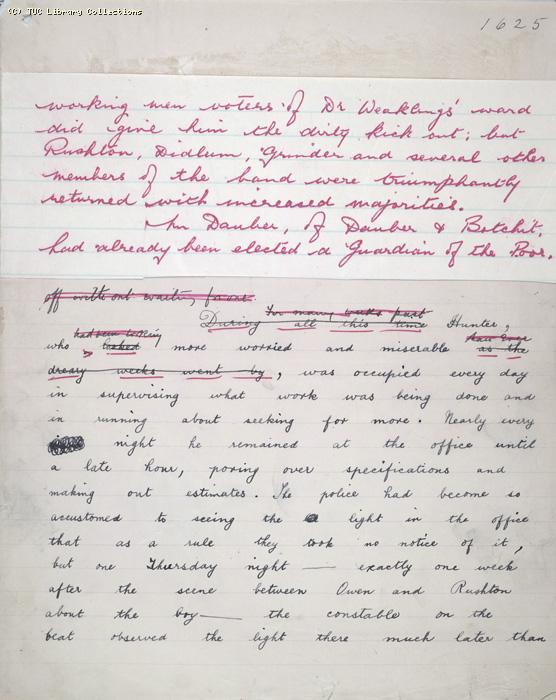 (C) TUC Library Collections
1625
working men voters of Dr Weaklings' ward
did give him the dirty kick out; but
Rushton, Didlum, Grinder and several other
members of the band were triumphantly
returned with increased majorities.
Mr Dauber, of Dauber & Botchit,
had already been elected a Guardian of the Poor.
off without waiting for an
For many weeks past
During all this time Hunter,
had been looking than ever
who looked more worried and miserable as the
dreary weeks went by, was occupied every day
in supervising what work was being done and
in running about seeking for more. Nearly every
night he remained at the office until
a late hour, poring over specifications and
making out estimates. The police had become so
accustomed to seeing the light in the office
that as a rule they took no notice of it,
but one Thursday night — exactly one week
after the scene between Owen and Rushton
about the boy — the constable on the
beat observed the light there much later than